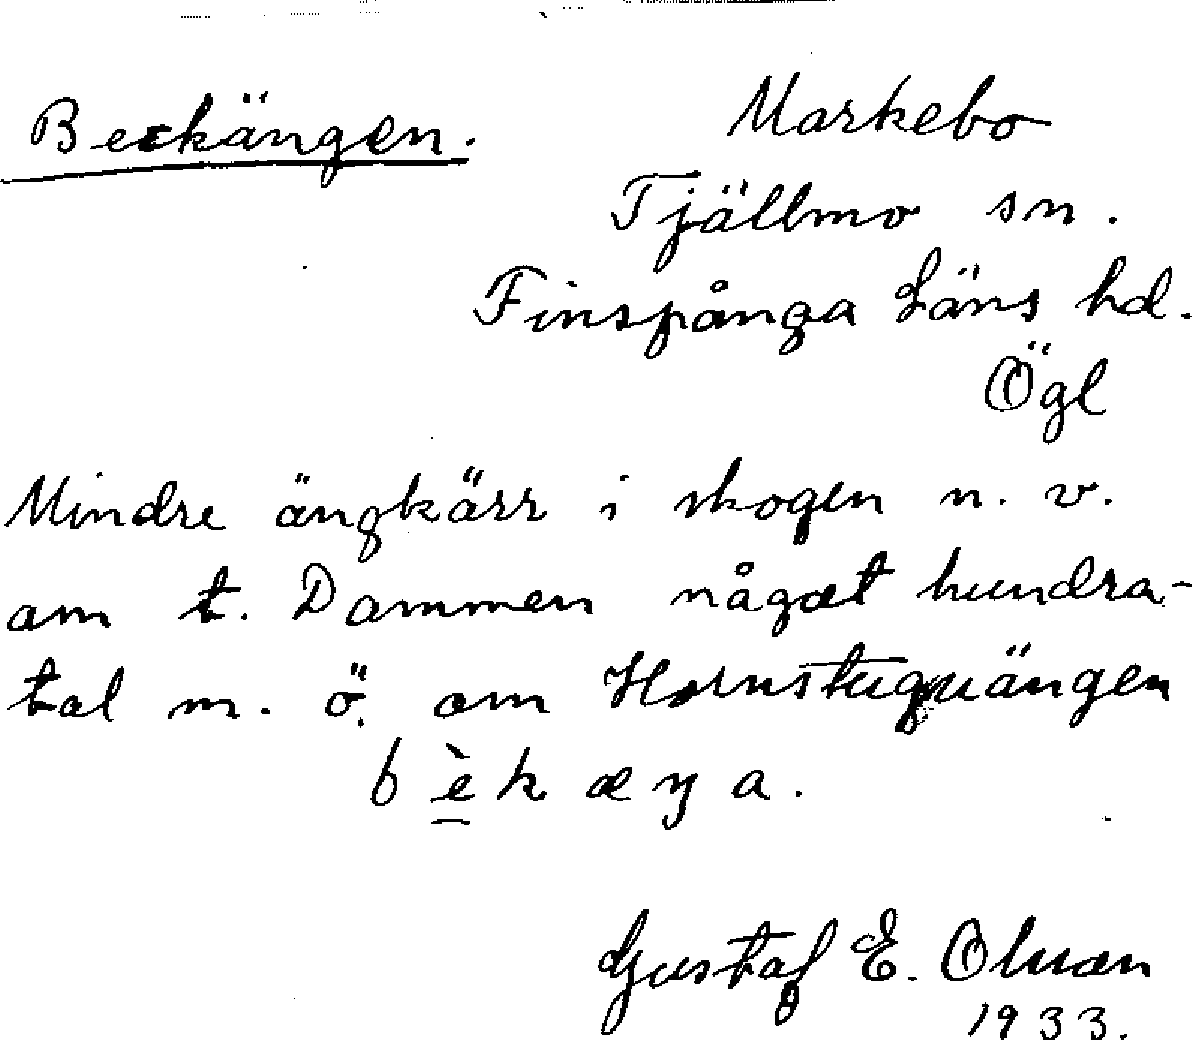 Beckängen.
Markebo
Tjällmo sn.
Finspånga Läns hd.
Ögl
Mindre ängkärr i skogen n. v.
om t. Dammen något hundra-
tal m. ö. om Hornstuguängen
b è k æ ŋ a.
Gustaf E. Olsson
1933.